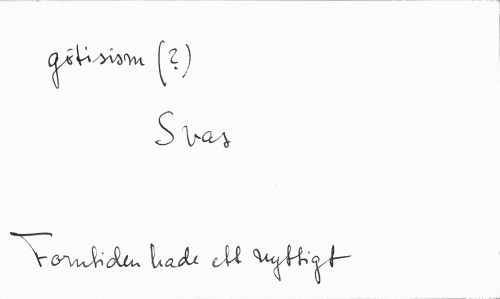 götisism (?)
Svas
Forntiden hade ett nyttigt